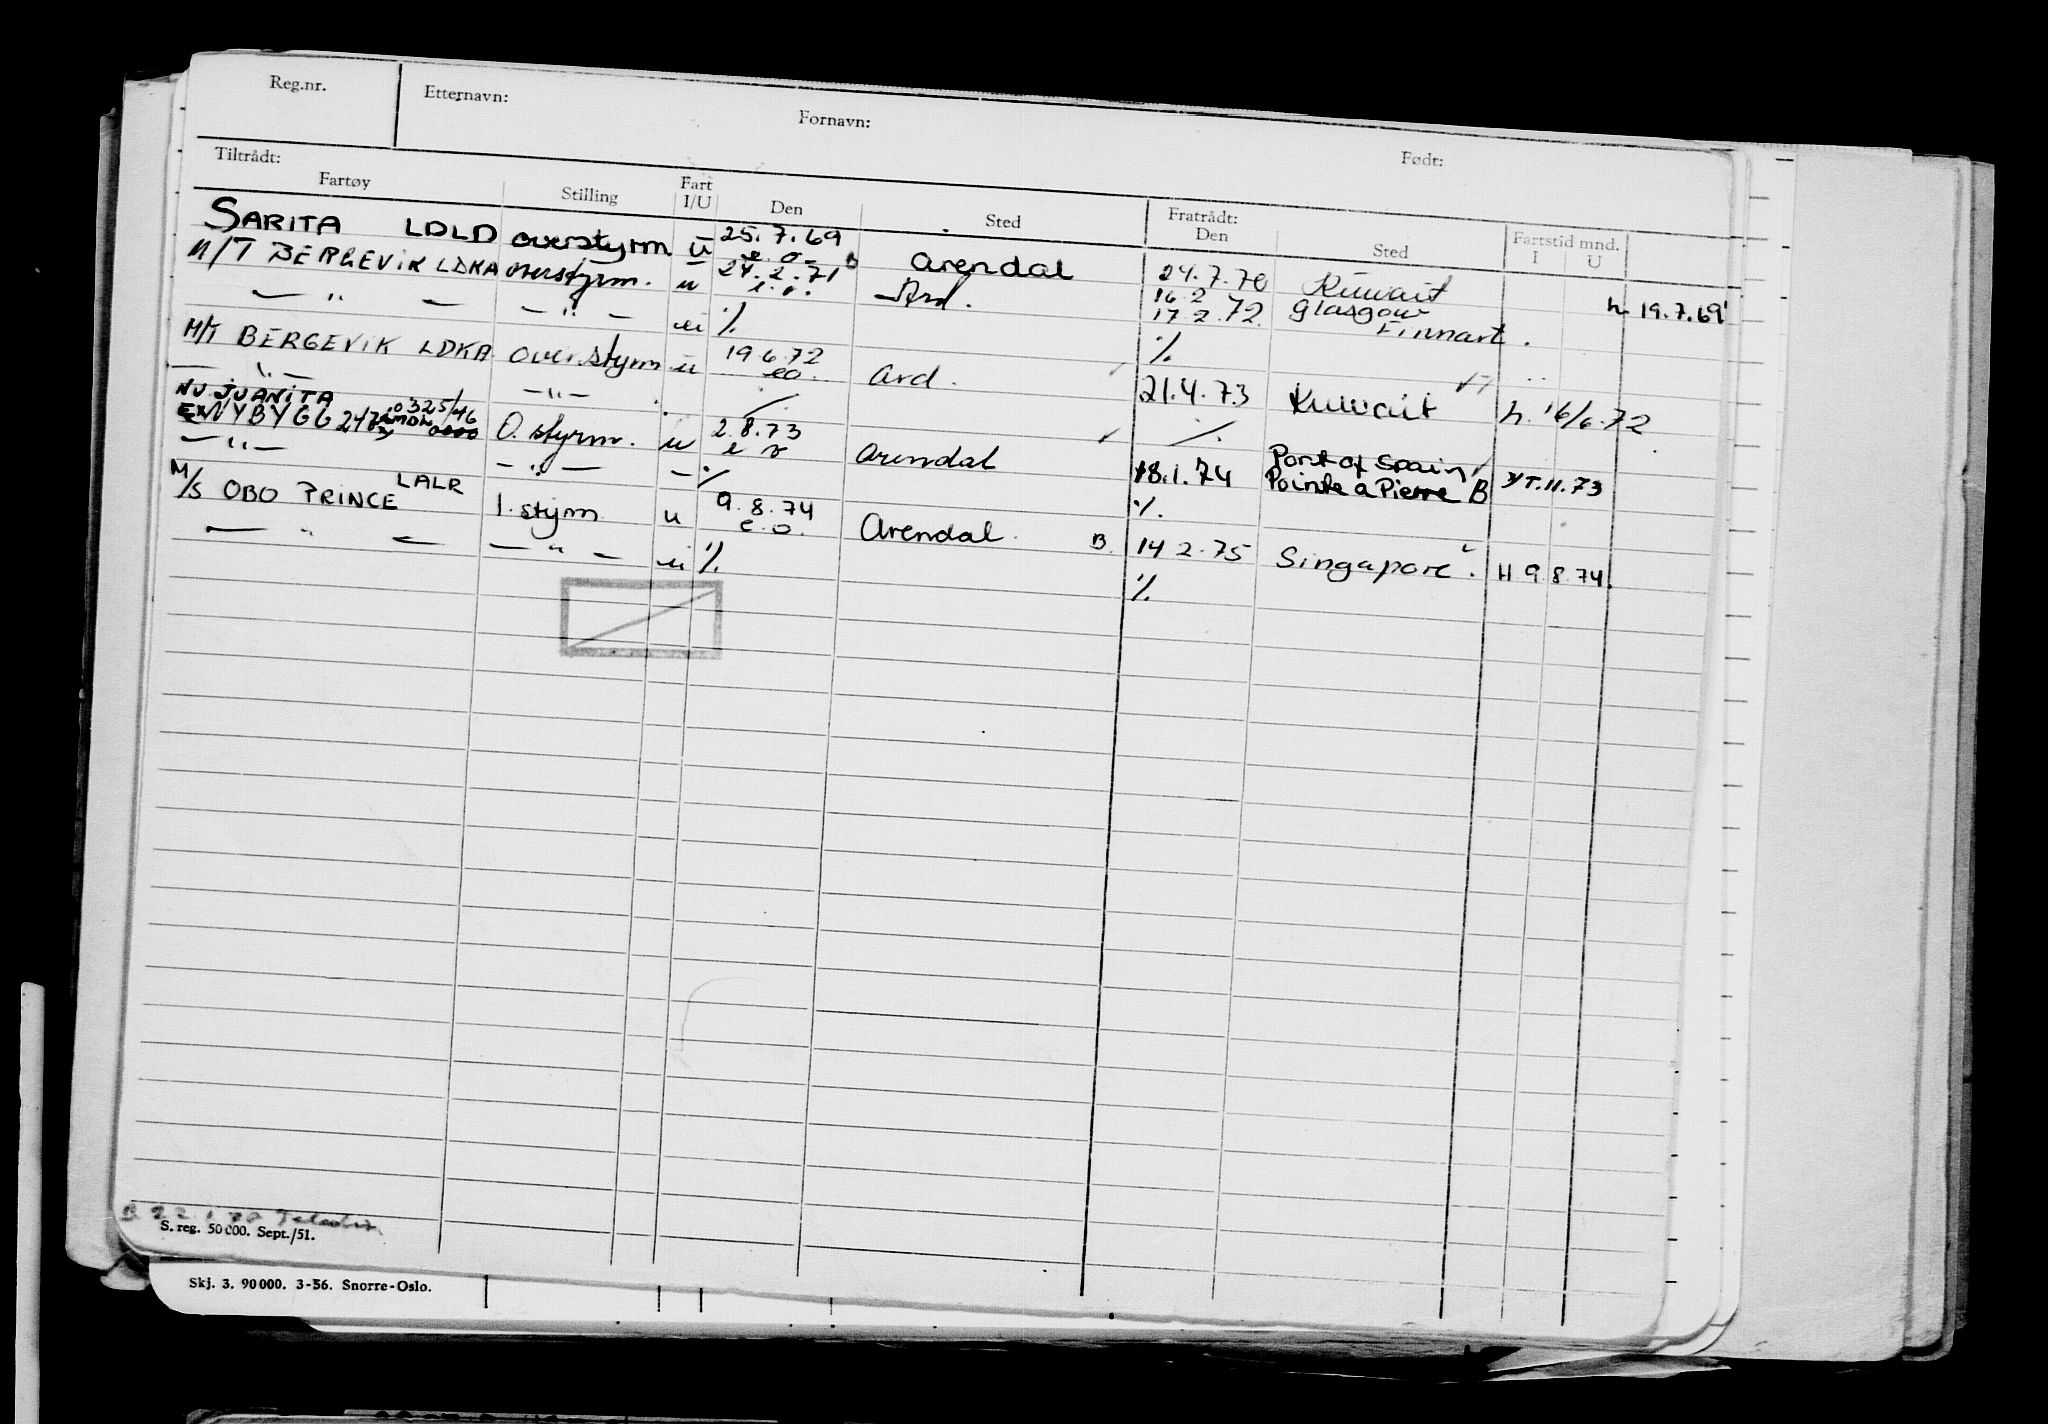 Reg.nr. Etternavn: Fornavn: Født:
Tiltrådt: Fratrådt:
Fartøy Stilling Fart I/U Den Sted Den Sted Fartstid mnd. I U
SARITA LDLD overstyrm u 25.7.69 e.o. B Arendal 24.7.70 Kuwait h 19.7.69
M/T BERGEVIK LDKA overstyrm. u 24.2.71 e.o. Ard. 16 2 17 2.72 Glasgow Finnart.
— " — — " — u ei % %
M/T BERGEVIK LDKA over.styrm u 19 6.72 eo. Ard. 21.4.73 Kuwait h. 16/6.72
— " — — " — % %
NU JUANITA
EX NYBYGG O. styrm. u 2.8.73 e o Arendal 18.1.74 Port of Spain Pointe a Pierre B 11.73
— " — — " — — % %
M/S OBO PRINCE LALR 1. styrm u 9.8.74 e.o. Arendal. B. 14 2.75 Singapore. H 9 8 74.
— " — — " — ei % %
B 22
S. reg. 50 000. Sept./51.
Skj. 3. 90 000. 3-56. Snorre-Oslo.